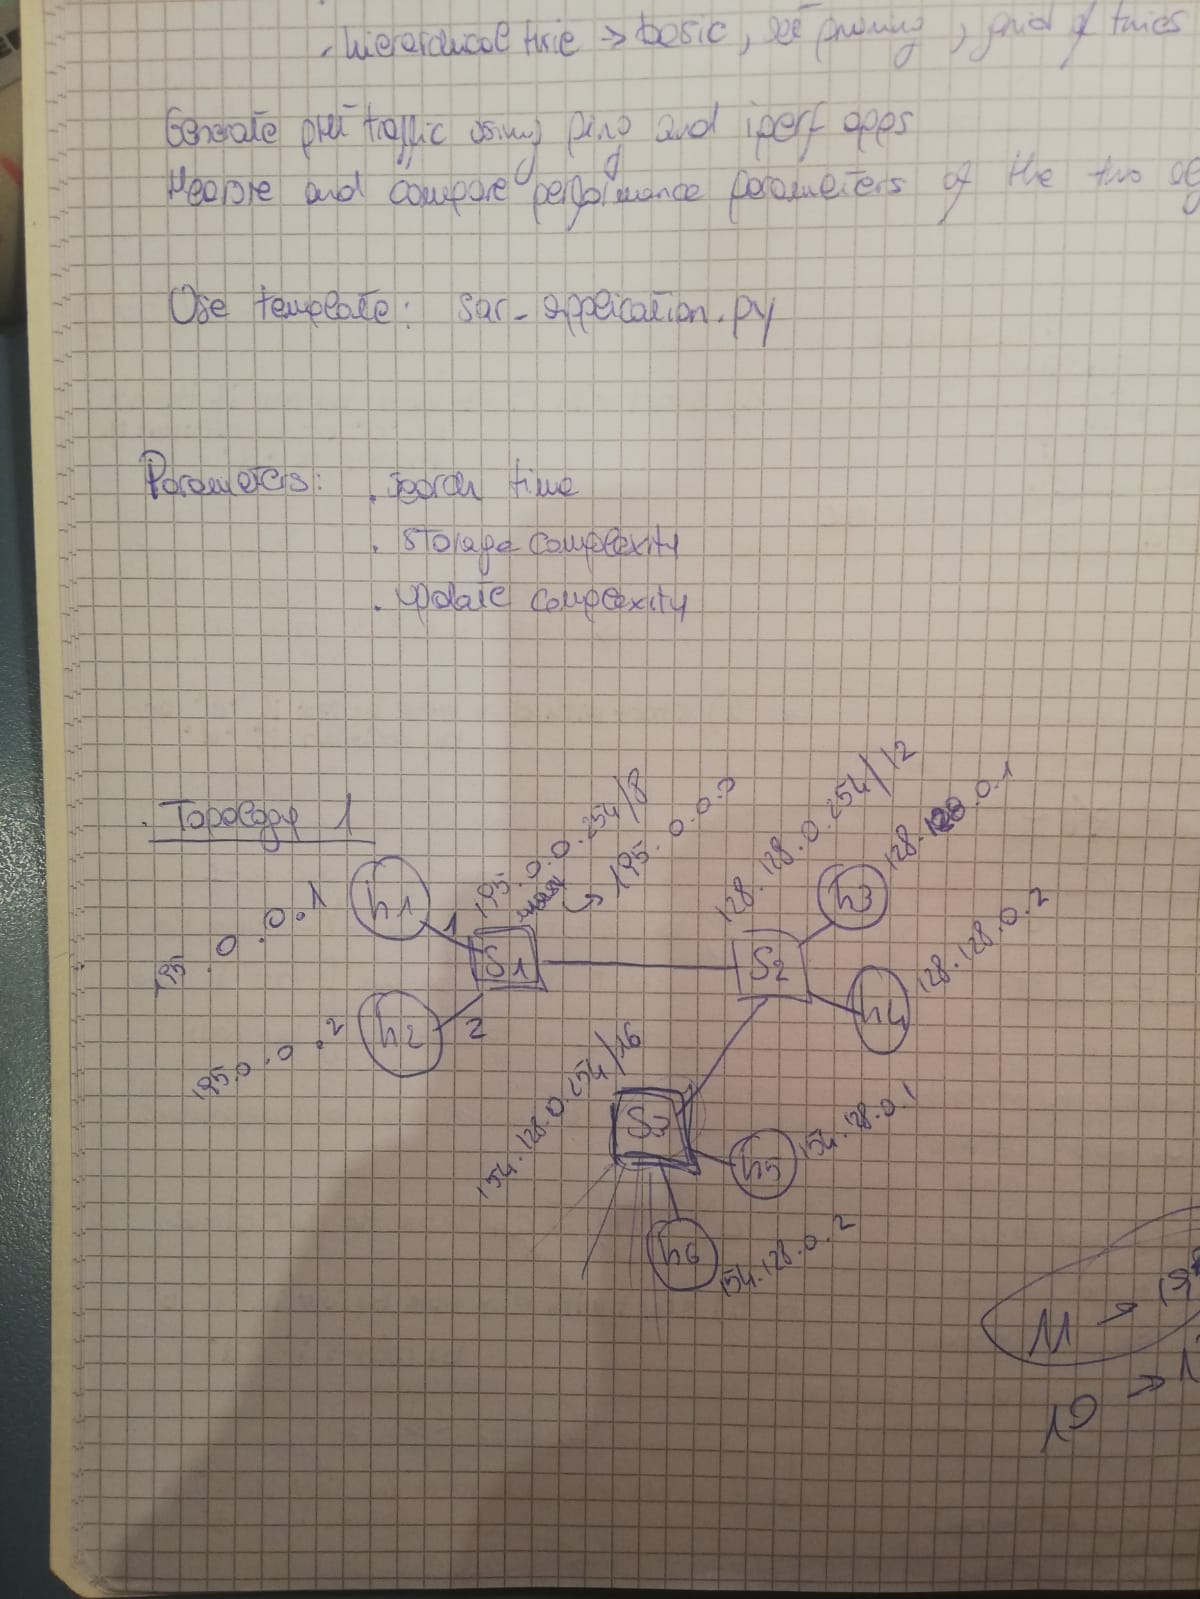 . Hierarchical trie → basic, set pruning, grid of tries
Generate pkt traffic using ping and iperf apps
and compare performance parameters of the two
Use template: sar_application.py
Parameters: . search time
. storage complexity
. update complexity
. Topology 1
195.0.0.1 h1 1 S1 195.0.0.254/8 ↳ 195.0.0.0
128.128.0.254/12 S2 h3 128.128.0.1
195.0.0.2 h2 2
h4 128.128.0.2
154.128.0.254/16 S3
h5 154.128.0.1
h6 154.128.0.2
M →
10 →